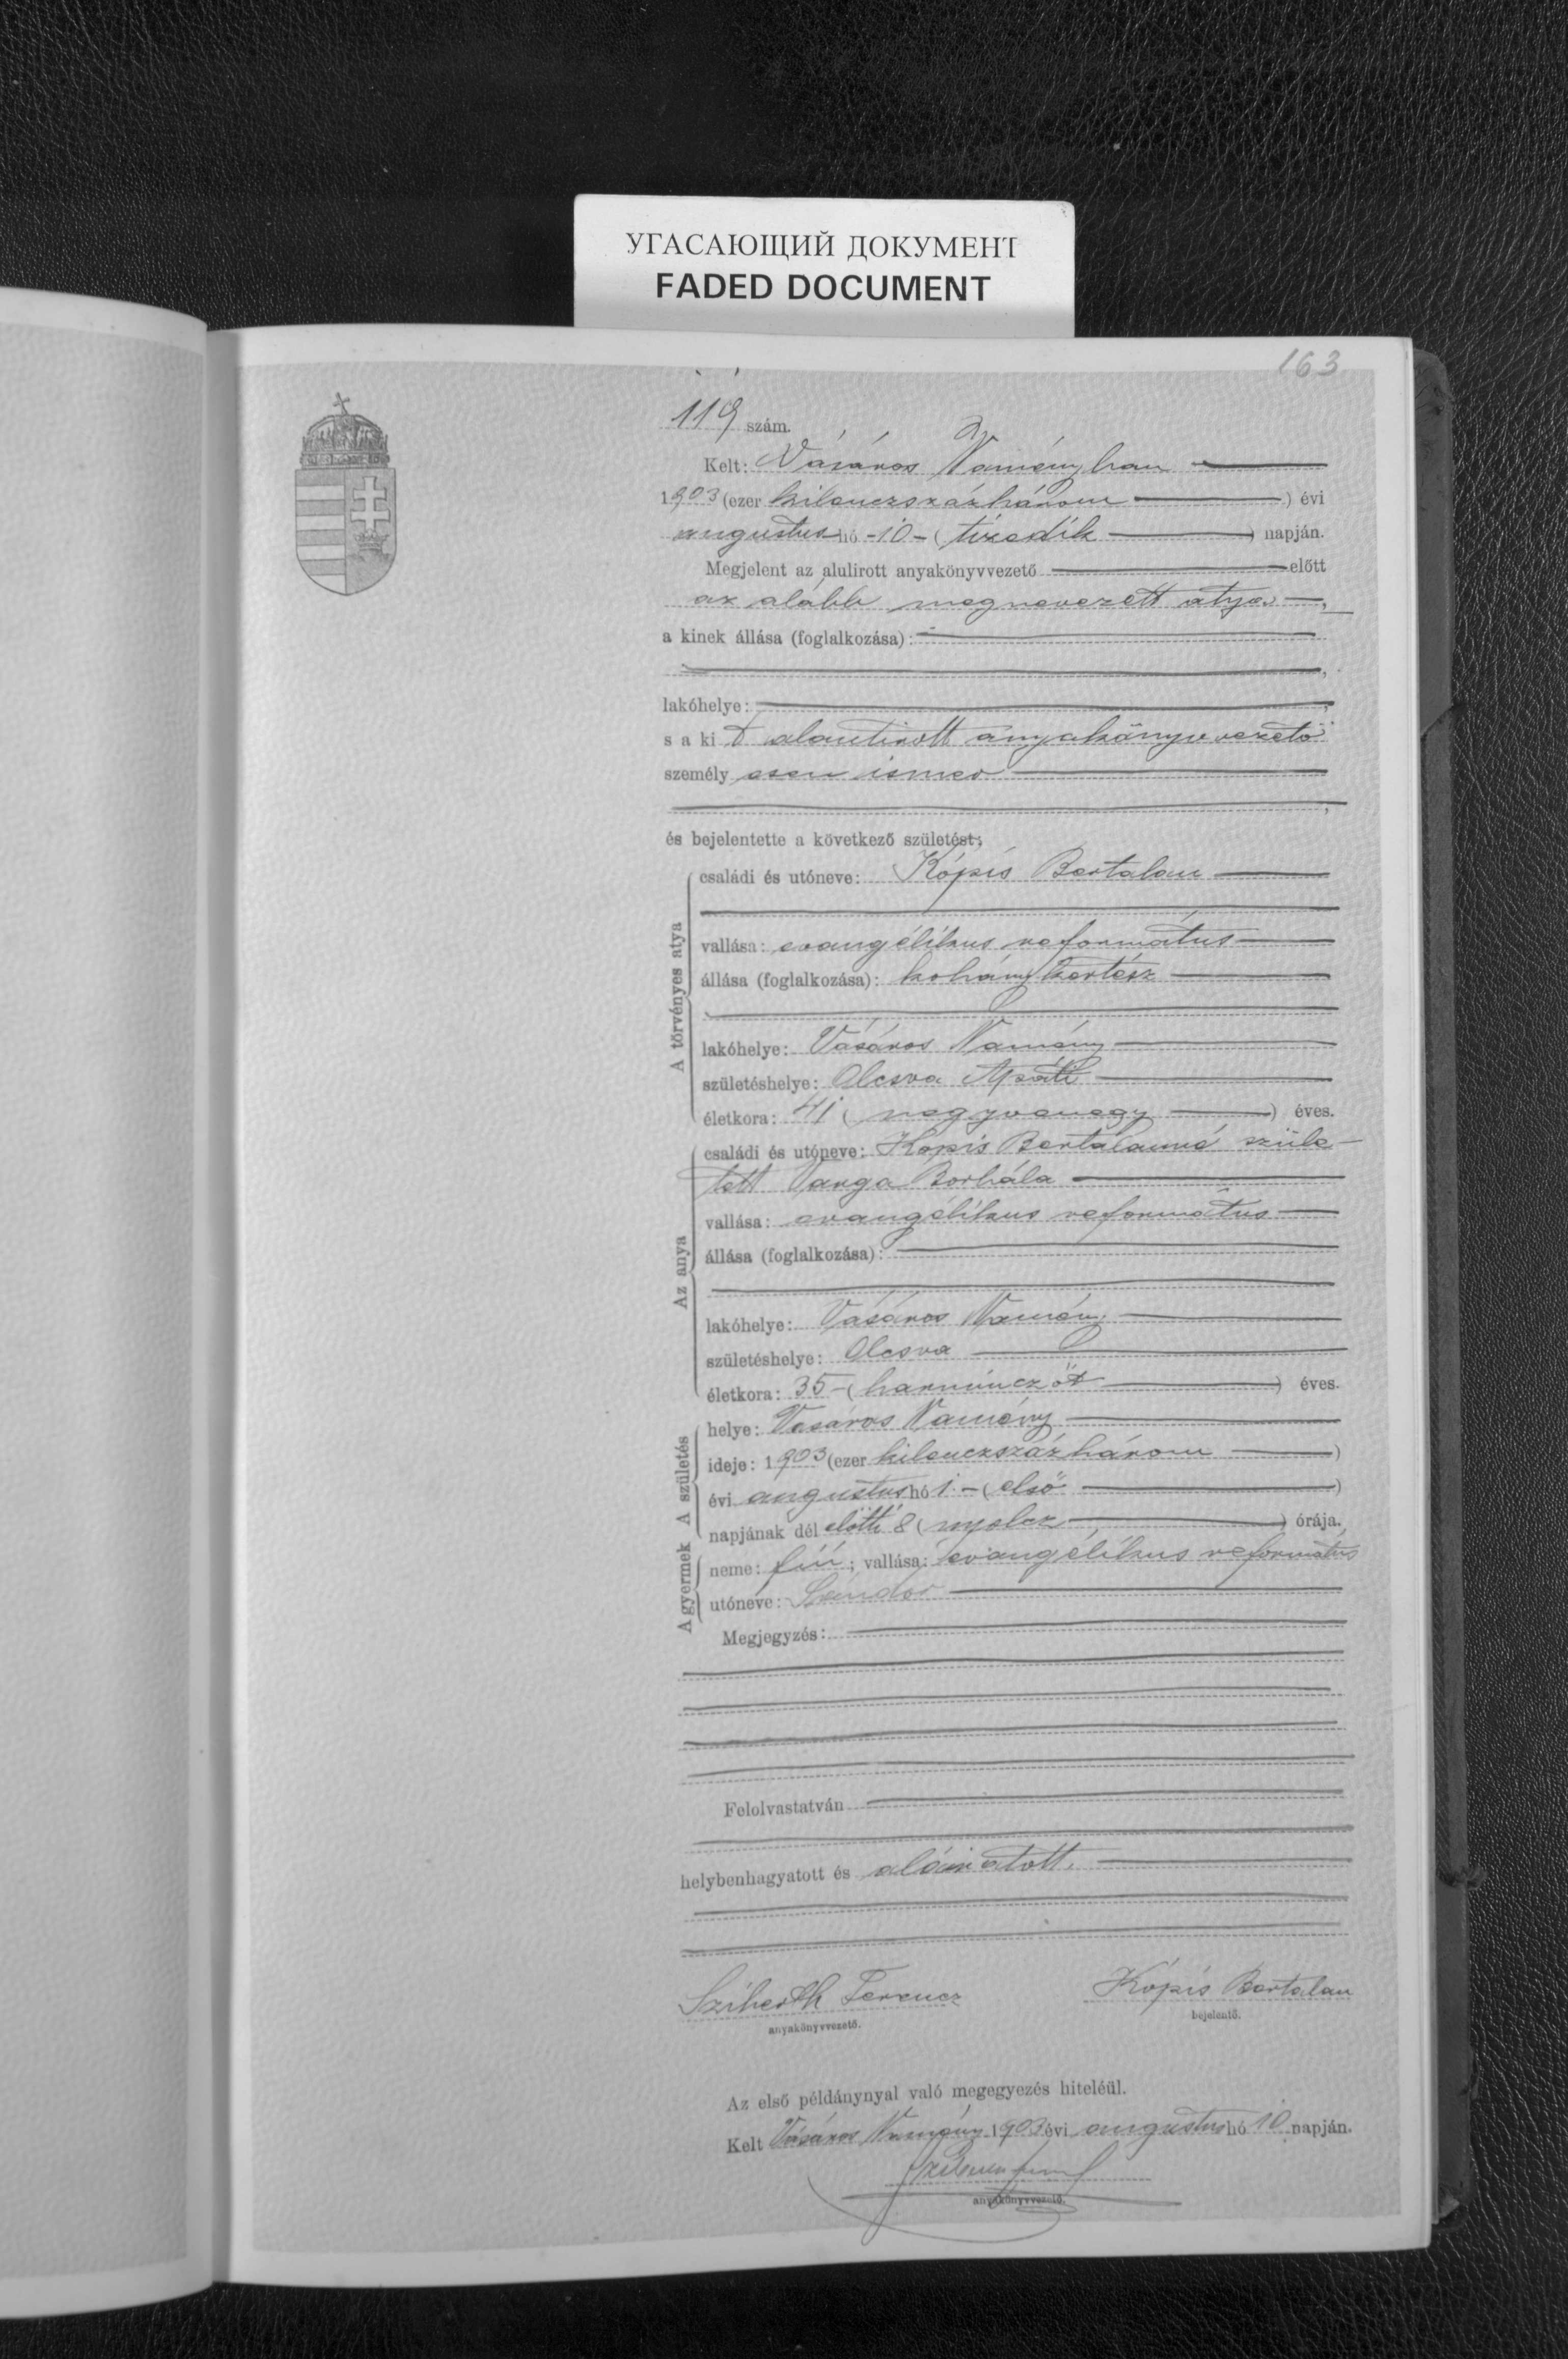 УГАСАЮЩИЙ ДОКУМЕНТ
FADED DOCUMENT
163
119 szám.
Kelt: Vásáros Naményban
1903 (ezer kilenczszázhárom) évi
augustus hó -10- (tizedik) napján.
Megjelent az alulirott anyakönyvvezető előtt
az alább megnevezett atya,
a kinek állása (foglalkozása):
lakóhelye:
s a kit alantirott anyakönyvvezető
személyesen ismer
és bejelentette a következő születést:
A törvényes atya
családi és utóneve: Kópis Bertalan
vallása: evangélikus református
állása (foglalkozása): kertész
lakóhelye: Vásáros Namény
születéshelye: Olcsva Apáti
életkora: 41 (negyvenegy) éves.
Az anya
családi és utóneve: Kópis Bertalanné szüle-
tett Varga Borbála
vallása: evangélikus református
állása (foglalkozása):
lakóhelye: Vásáros Namény
születéshelye: Olcsva
életkora: 35 - (harminczöt) éves.
A születés
helye: Vásáros Namény
ideje: 1903 (ezer kilenczszázhárom)
évi augustus hó 1 - (első)
napjának dél előtti 8 (nyolcz) órája.
A gyermek
neme: fiú; vallása: evangélikus református
utóneve: Sándor
Megjegyzés:
Felolvastatván
helybenhagyatott és aláiratott.
Ferencz Kópis Bertalan
anyakönyvvezető. bejelentő.
Az első példánynyal való megegyezés hiteléül.
Kelt Vásáros Namény 1903 évi augustus hó 10 napján.
anyakönyvvezető.